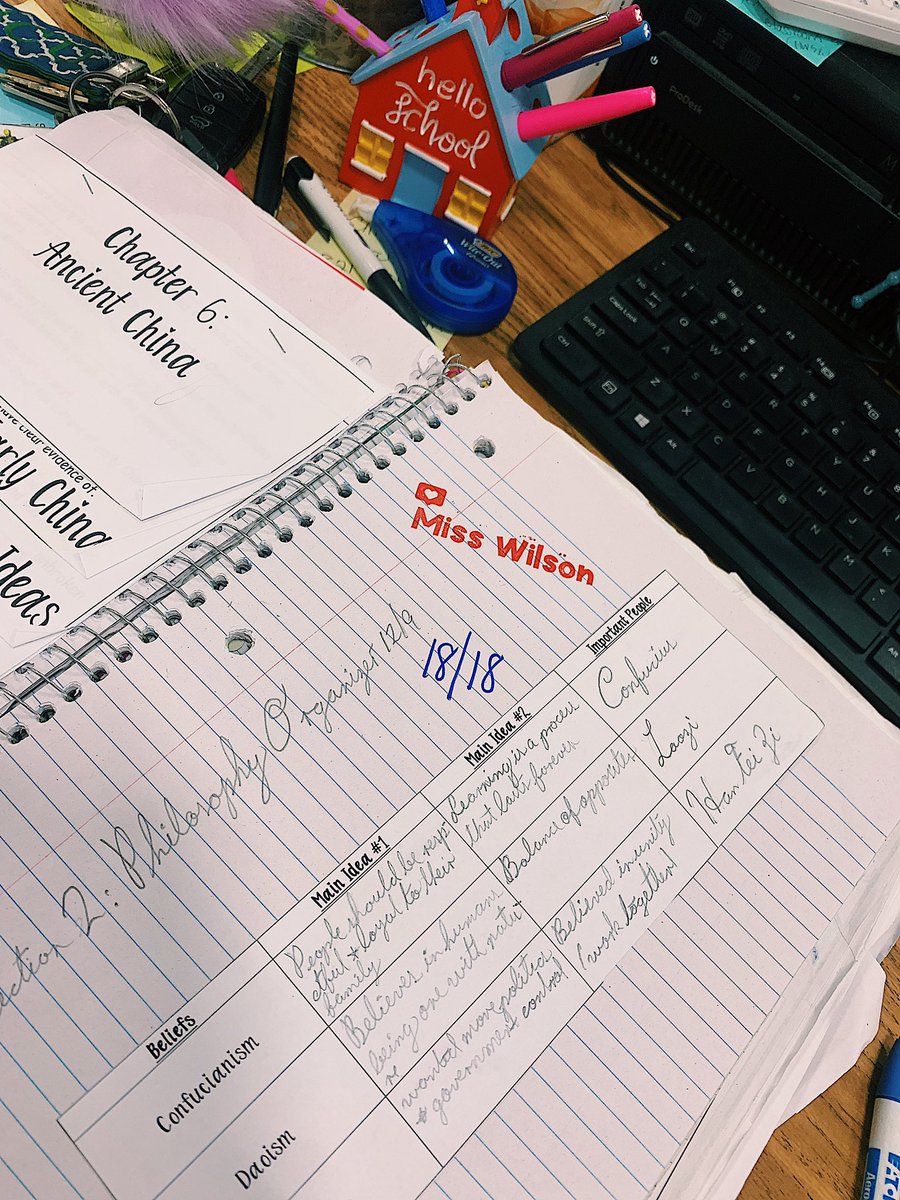 hello
School
ProDesk
Wite-Out
Chapter 6:
Ancient China
clear evidence of.
arly China
Ideas
Miss Wilson
18/18
ection 2: Philosophy Organizer 12/9
Beliefs
Main Idea #1
Main Idea #2
Important People
Confucianism
People should be resp-
ectful + loyal to their
family
Learning is a process
that lasts forever
Confucius
Daoism
Believes in humans
being one with natu-
re
Balance of opposites
Laozi
wanted more political
+ government control
Believed in unity
(work together)
Han Fei Zi
Esc
Tab
Caps Lock
Shift
Ctrl
Fn
Q
W
E
A
S
D
Z
X
C
V
B
N
M